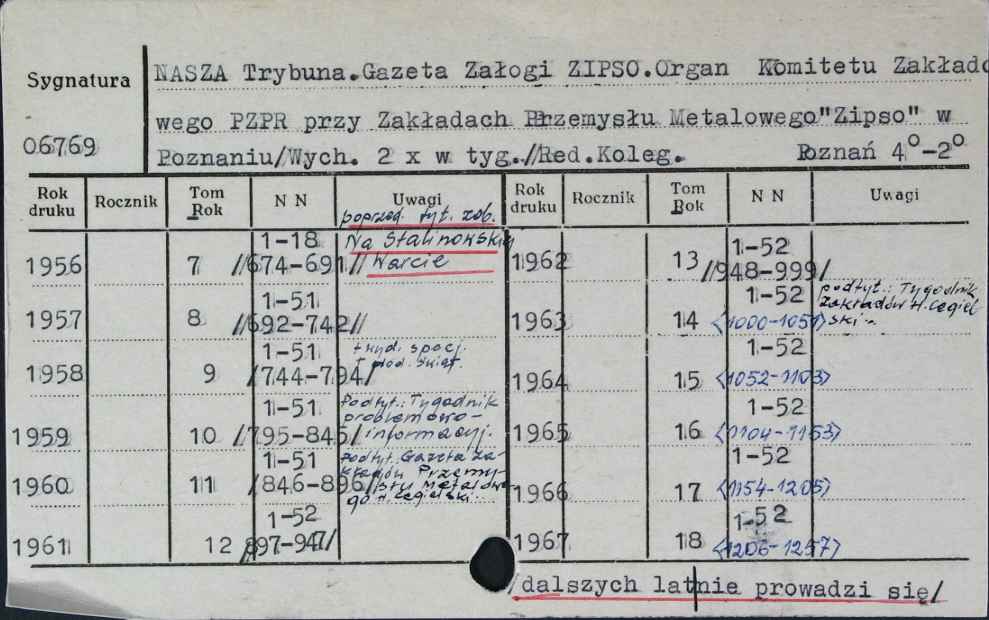 Sygnatura
06769
NASZA Trybuna.Gazeta Załogi ZIPSO.Organ Komitetu Zakłado
wego PZPR przy Zakładach Przemysłu Metalowego"Zipso" w
Poznaniu/Wych. 2 x w tyg./Red.Koleg. Poznań 4°-2°
Rok druku Rocznik Tom Rok N N Uwagi Rok druku Rocznik Tom Rok N N Uwagi
poprzed. tyt. zob.
Na Stalinowskiej
Warcie
1956 7 1-18 /674-691/
1957 8 1-51 /692-742/
1958 9 1-51 /744-794/ + wyd. specj.
1959 10 1-51 /795-845/ Podtyt.: Tygodnik
problemowo-
informacyj.
1960 11 1-51 /846-896/ podtyt. Gazeta Za-
kładów Przemy-
słu Metalowe-
go H. Cegielski.
1961 12 1-52 897-947/
1962 13 1-52 /948-999/
1963 14 1-52 <1000-1051> podtyt.: Tygodnik
Zakładów H. Cegiel
ski-
1964 15 1-52 <1052-1103>
1965 16 1-52 <1104-1153>
1966 17 1-52 <1154-1205>
1967 18 1-52 <1206-1257>
/dalszych lat nie prowadzi się/